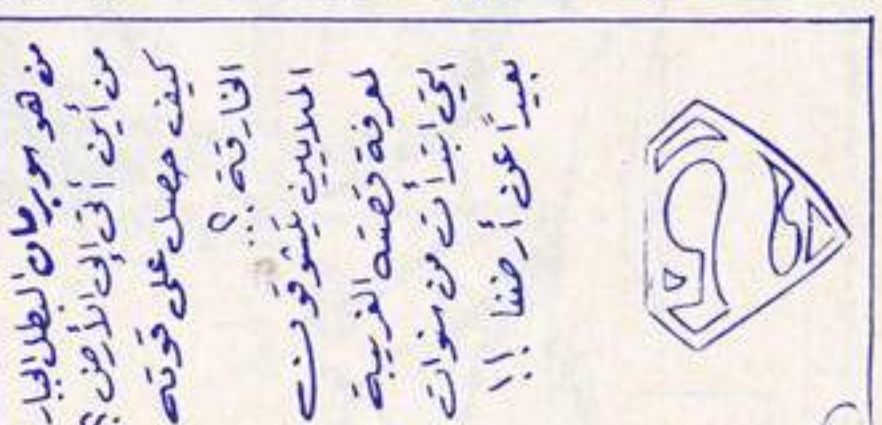 من هو سوبرمان البطل الجبار
من أين أتى إلى الأرض ؟
كيف حصل على قوته
الخارقة .. ؟
الملايين يتشوقون
لمعرفة قصته الغريبة
التي ابتدأت من سنوات
بعيداً عن أرضنا !!
S